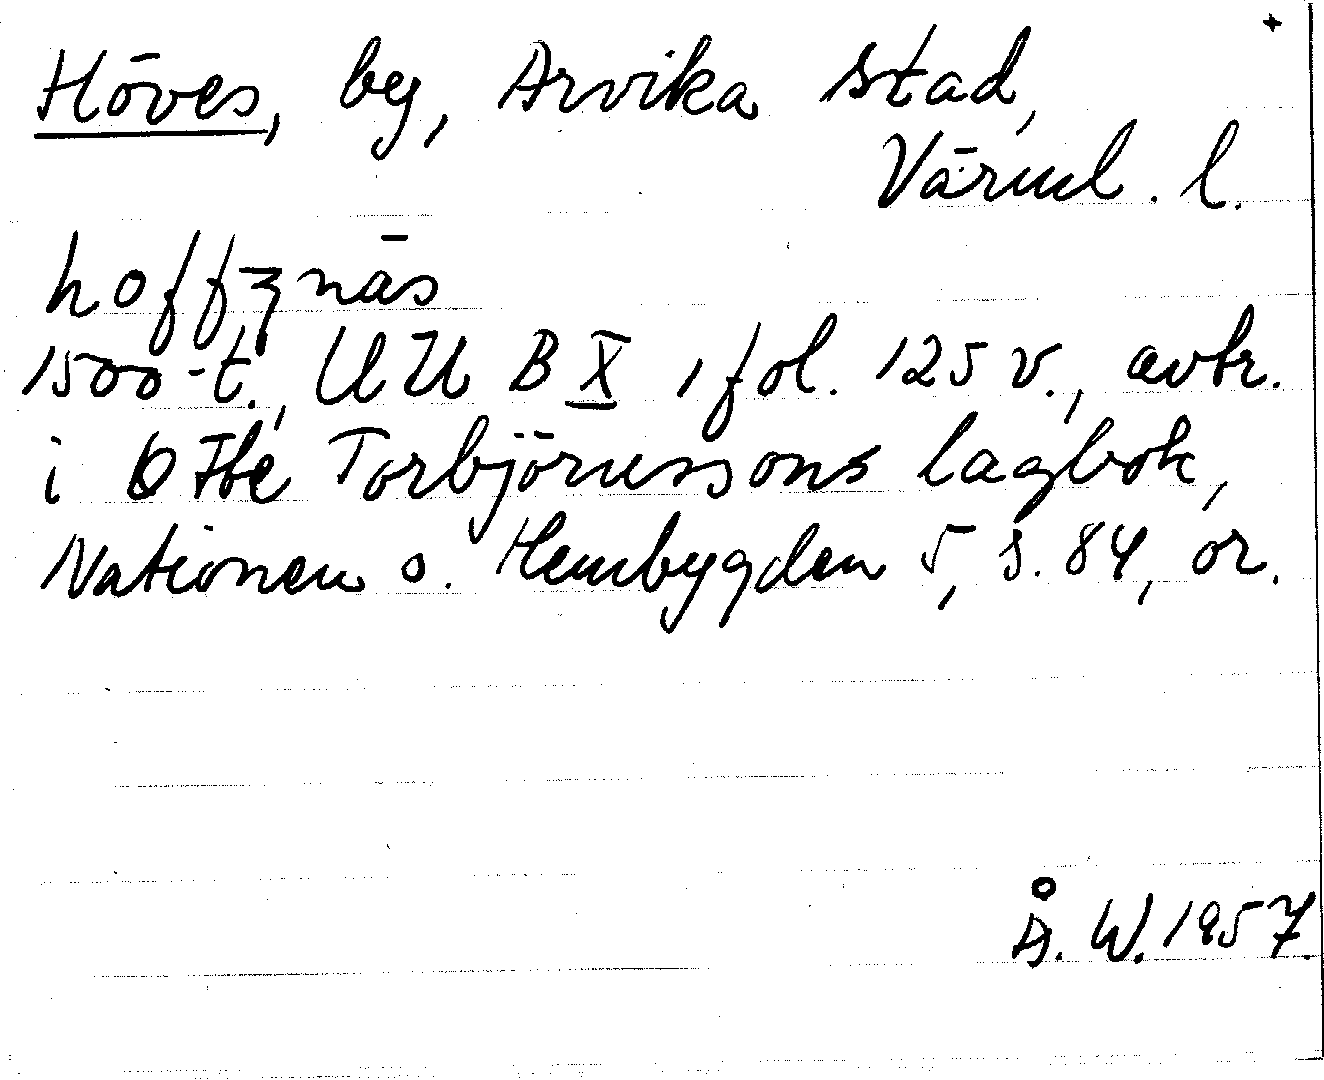 +
Höves, by, Arvika stad,
Värml. l.
hoffʒnäs
1500-t., UU B X, fol. 125 v., avtr.
i Otte Torbjörnssons lagbok,
Nationen o. Hembygden 5, s. 84, or.
Å. W. 1957.